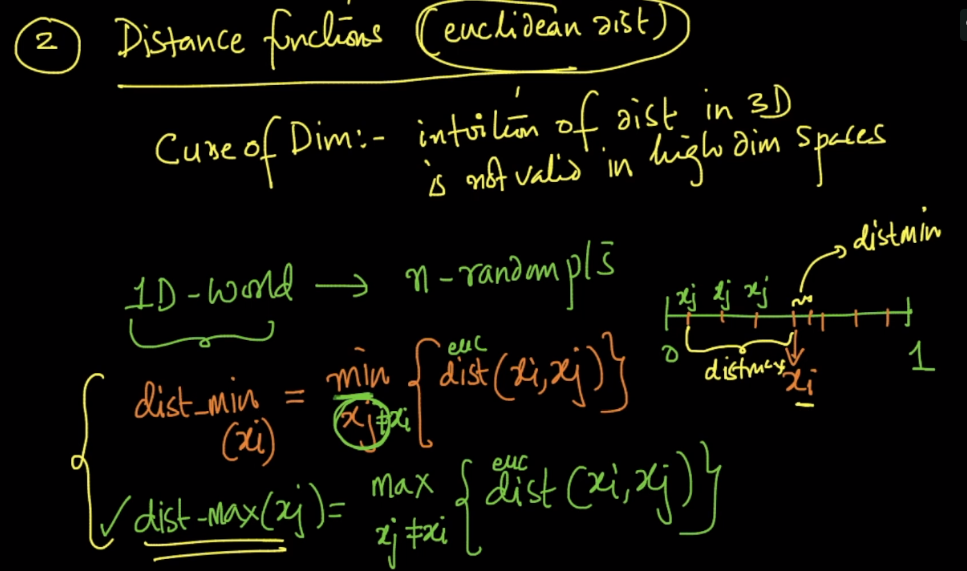 2 Distance functions (euclidean dist)
Curse of Dim:- intuition of dist in 3D
is not valid in high dim spaces
1D-world → n-random pts
distmin
xj xj xj
0 distmax xi 1
dist_min (xi) = min xj≠xi { euc dist (xi, xj) }
✓ dist-max(xj) = max xj≠xi { euc dist (xi, xj) }